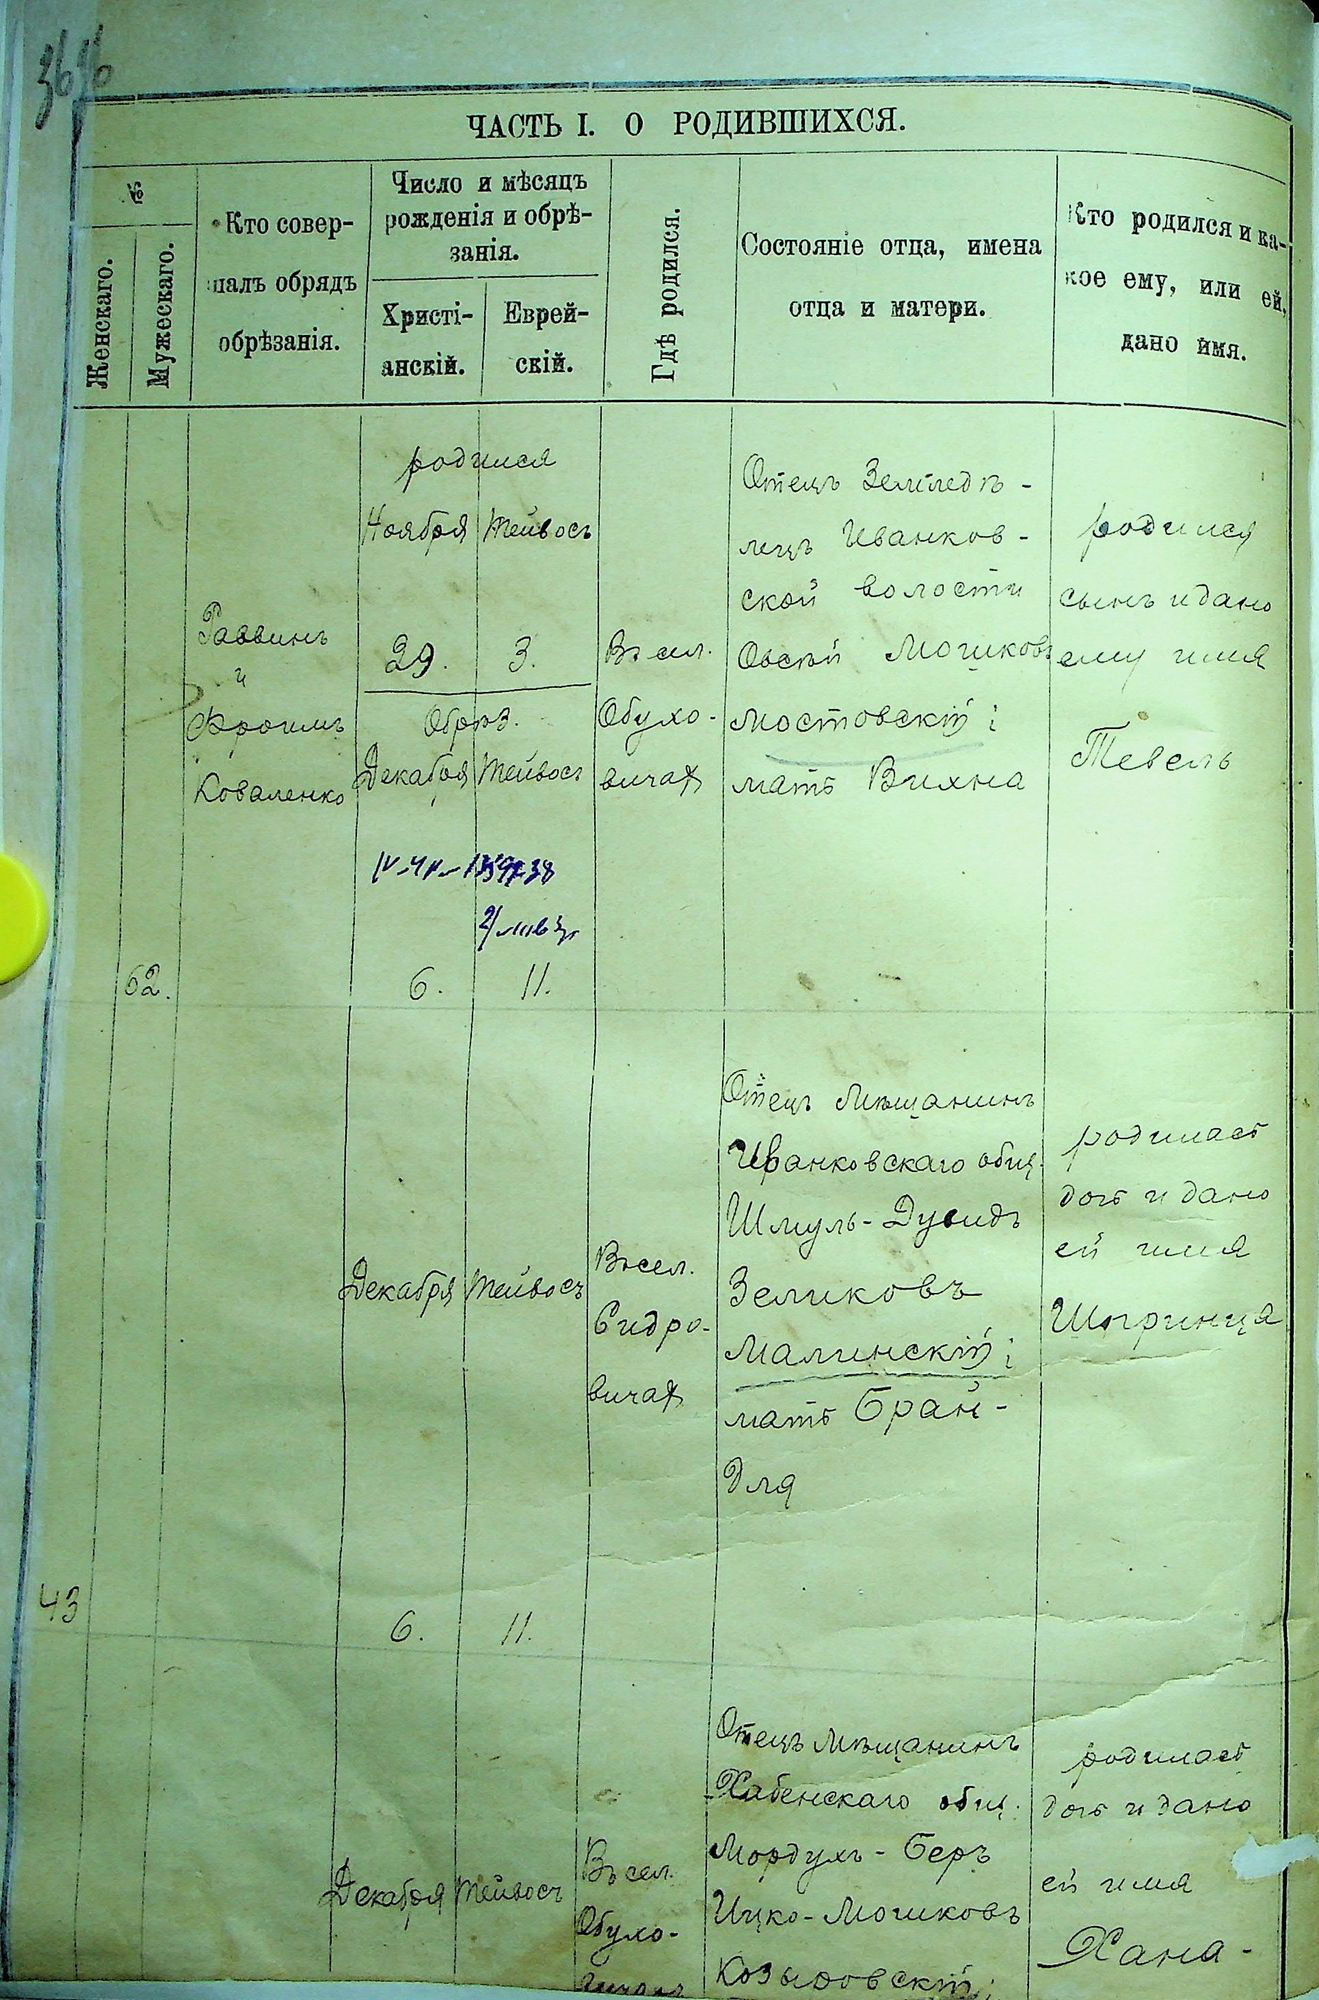 ЧАСТЬ I. О РОДИВШИХСЯ.
№
Женскаго.
Мужескаго.
Кто совер-
шалъ обрядъ
обрѣзанія.
Число и мѣсяцъ
рожденія и обрѣ-
занія.
Христі-
анскій.
Еврей-
скій.
Гдѣ родился.
Состояніе отца, имена
отца и матери.
Кто родился и ка-
кое ему, или ей,
дано имя.
62.
Раввинъ
и
Фроимъ
Коваленко
родился
Ноября Тейвосъ
29. 3.
Обрѣз.
Декабря Тейвосъ
6. 11.
Въ сел.
Обухо-
вичах
Отецъ Земледѣ-
лецъ Иванков-
ской волости
Овсѣй Мошковъ
Мостовскій;
мать Вихна
родился
сынъ и дано
ему имя
Тевель
43
Декабря Тейвосъ
6. 11.
Въ сел.
Сидро-
вичах
Отецъ Мѣщанинъ
Иванковскаго общ.
Шмуль-Дувидъ
Зеликовъ
Малинскій;
мать Брай-
для
родилась
дочь и дано
ей имя
Шпринця
Декабря Тейвосъ
Въ сел.
Обухо-
Отецъ Мѣщанинъ
Хабенскаго общ.
Мордухъ-Беръ
Ицко-Мошковъ
Козыровскій;
родилась
дочь и дано
ей имя
Хана-